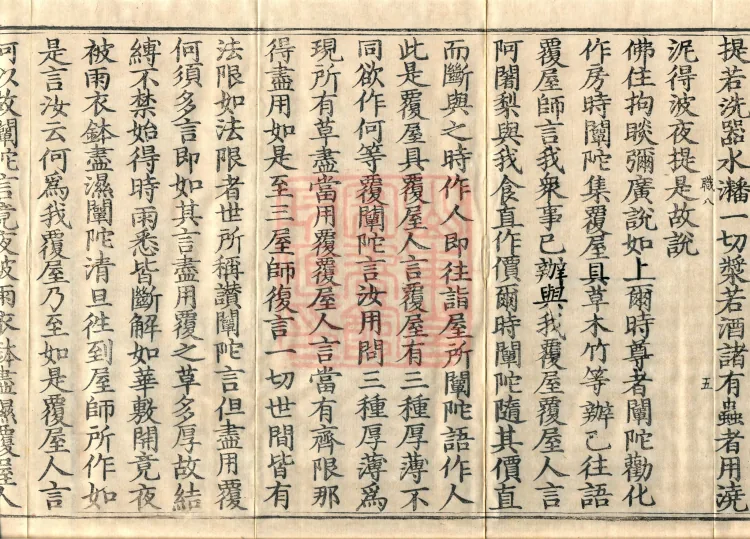 提若洗器水潘一切漿若酒諸有蟲者用澆
泥得波夜提是故說
職八
五
佛住拘睒彌廣說如上爾時尊者闡陀勸化
作房時闡陀集覆屋具草木竹等辦已往語
覆屋師言我衆事已辦與我覆屋覆屋人言
阿闍梨與我食直作價爾時闡陀隨其價直
而斷與之時作人即往詣屋所闡陀語作人
此是覆屋具覆屋人言覆屋有三種厚薄不
同欲作何等覆闡陀言汝用問三種厚薄爲
現所有草盡當用覆覆屋人言當有齊限那
得盡用如是至三屋師復言一切世間皆有
法限如法限者世所稱讃闡陀言但盡用覆
何須多言即如其言盡用覆之草多厚故結
縛不禁始得時雨悉皆斷解如華敷開竟夜
被雨衣鉢盡濕闡陀清旦徃到屋師所作如
是言汝云何爲我覆屋乃至如是覆屋人言
何以故闡陀言竟夜被雨衣鉢盡濕覆屋人